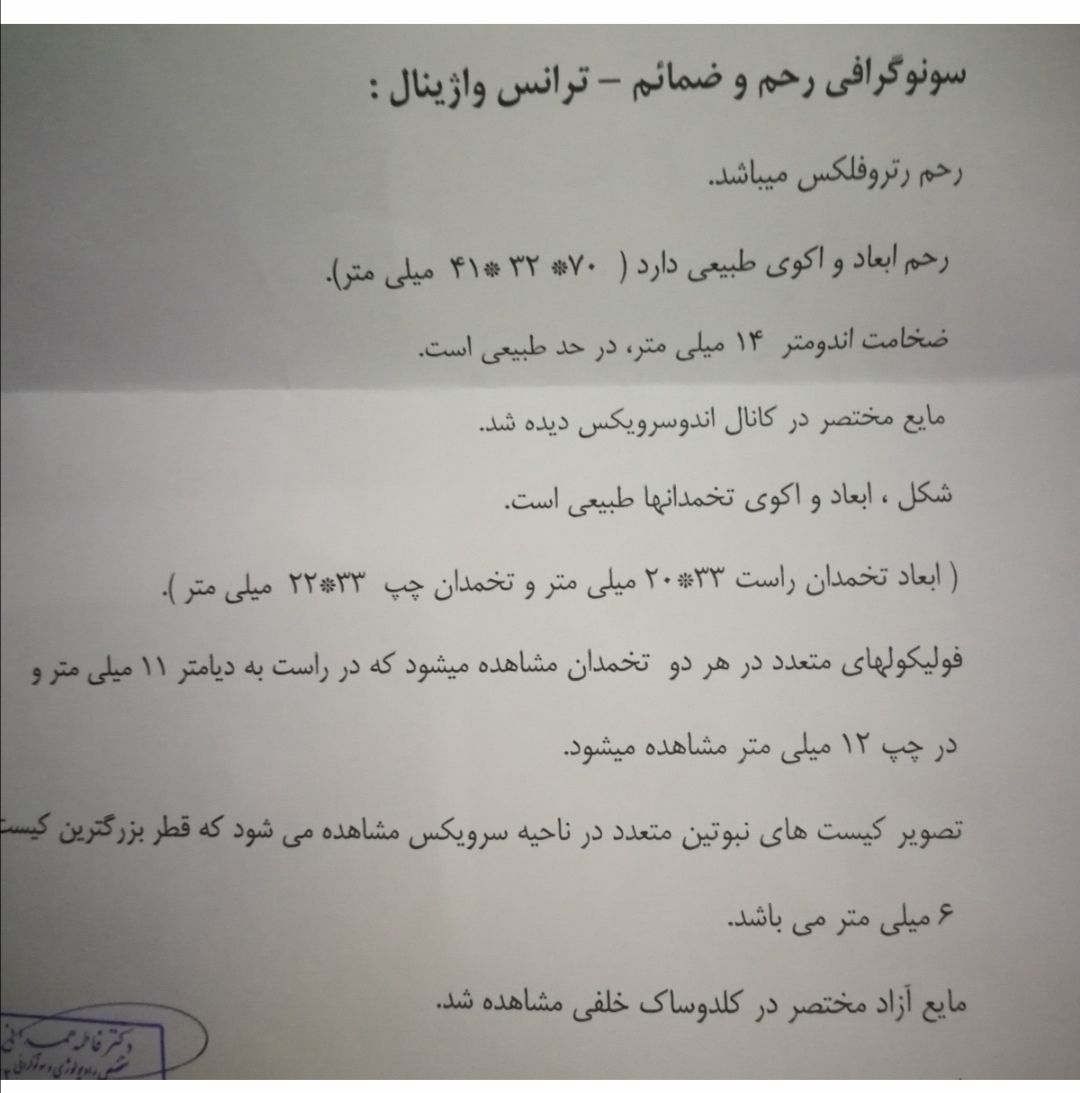 سونوگرافی رحم و ضمائم – ترانس واژینال :
رحم رتروفلکس میباشد.
رحم ابعاد و اکوی طبیعی دارد ( ۷۰* ۳۲ *۴۱ میلی متر).
ضخامت اندومتر ۱۴ میلی متر، در حد طبیعی است.
مایع مختصر در کانال اندوسرویکس دیده شد.
شکل ، ابعاد و اکوی تخمدانها طبیعی است.
( ابعاد تخمدان راست ۳۳*۲۰ میلی متر و تخمدان چپ ۳۳*۲۲ میلی متر ).
فولیکولهای متعدد در هر دو تخمدان مشاهده میشود که در راست به دیامتر ۱۱ میلی متر و
در چپ ۱۲ میلی متر مشاهده میشود.
تصویر کیست های نبوتین متعدد در ناحیه سرویکس مشاهده می شود که قطر بزرگترین کیست
۶ میلی متر می باشد.
مایع آزاد مختصر در کلدوساک خلفی مشاهده شد.
دکتر فاطمه